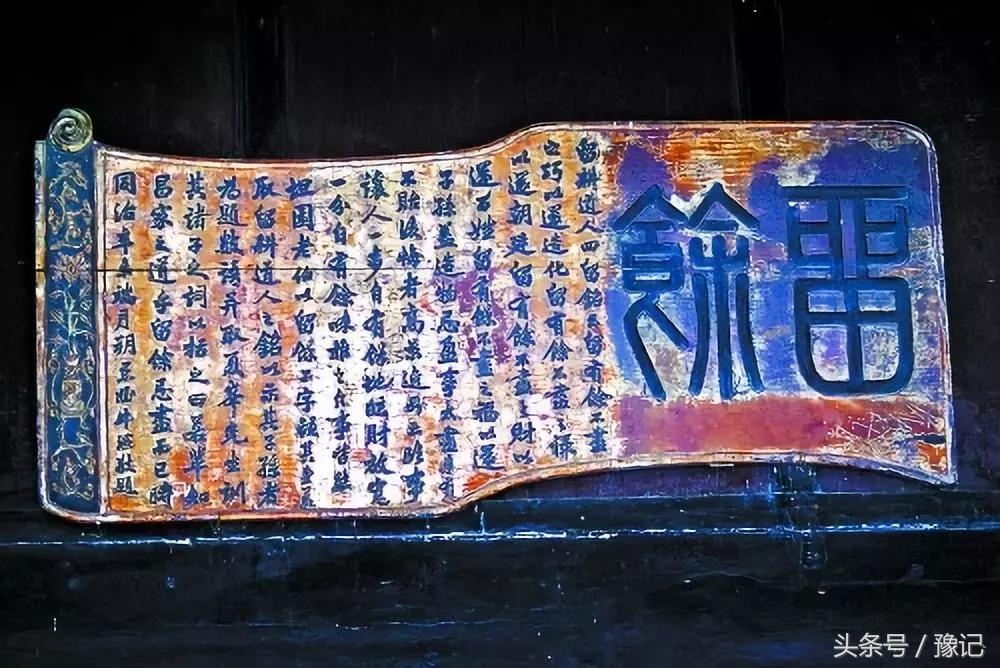 留餘
留耕道人四留銘云留有餘不盡
之巧以還造化留有餘不盡之祿
以還朝廷留有餘不盡之財以
還百姓留有餘不盡之福以還
子孫蓋造物忌盈事太盡未有
不貽後悔者高景逸所云臨事
讓人一步自有餘地臨財放寬
一分自有餘味推之凡事皆然
坦園老伯以留餘二字顏其
取留耕道人之銘以示其子孫者
為題數語并取夏峰先生訓
其諸子之詞以括之曰若輩知
昌家之道乎留餘忌盡而已時
同治辛未端月朔愚侄牛瑄敬題
头条号 / 豫记